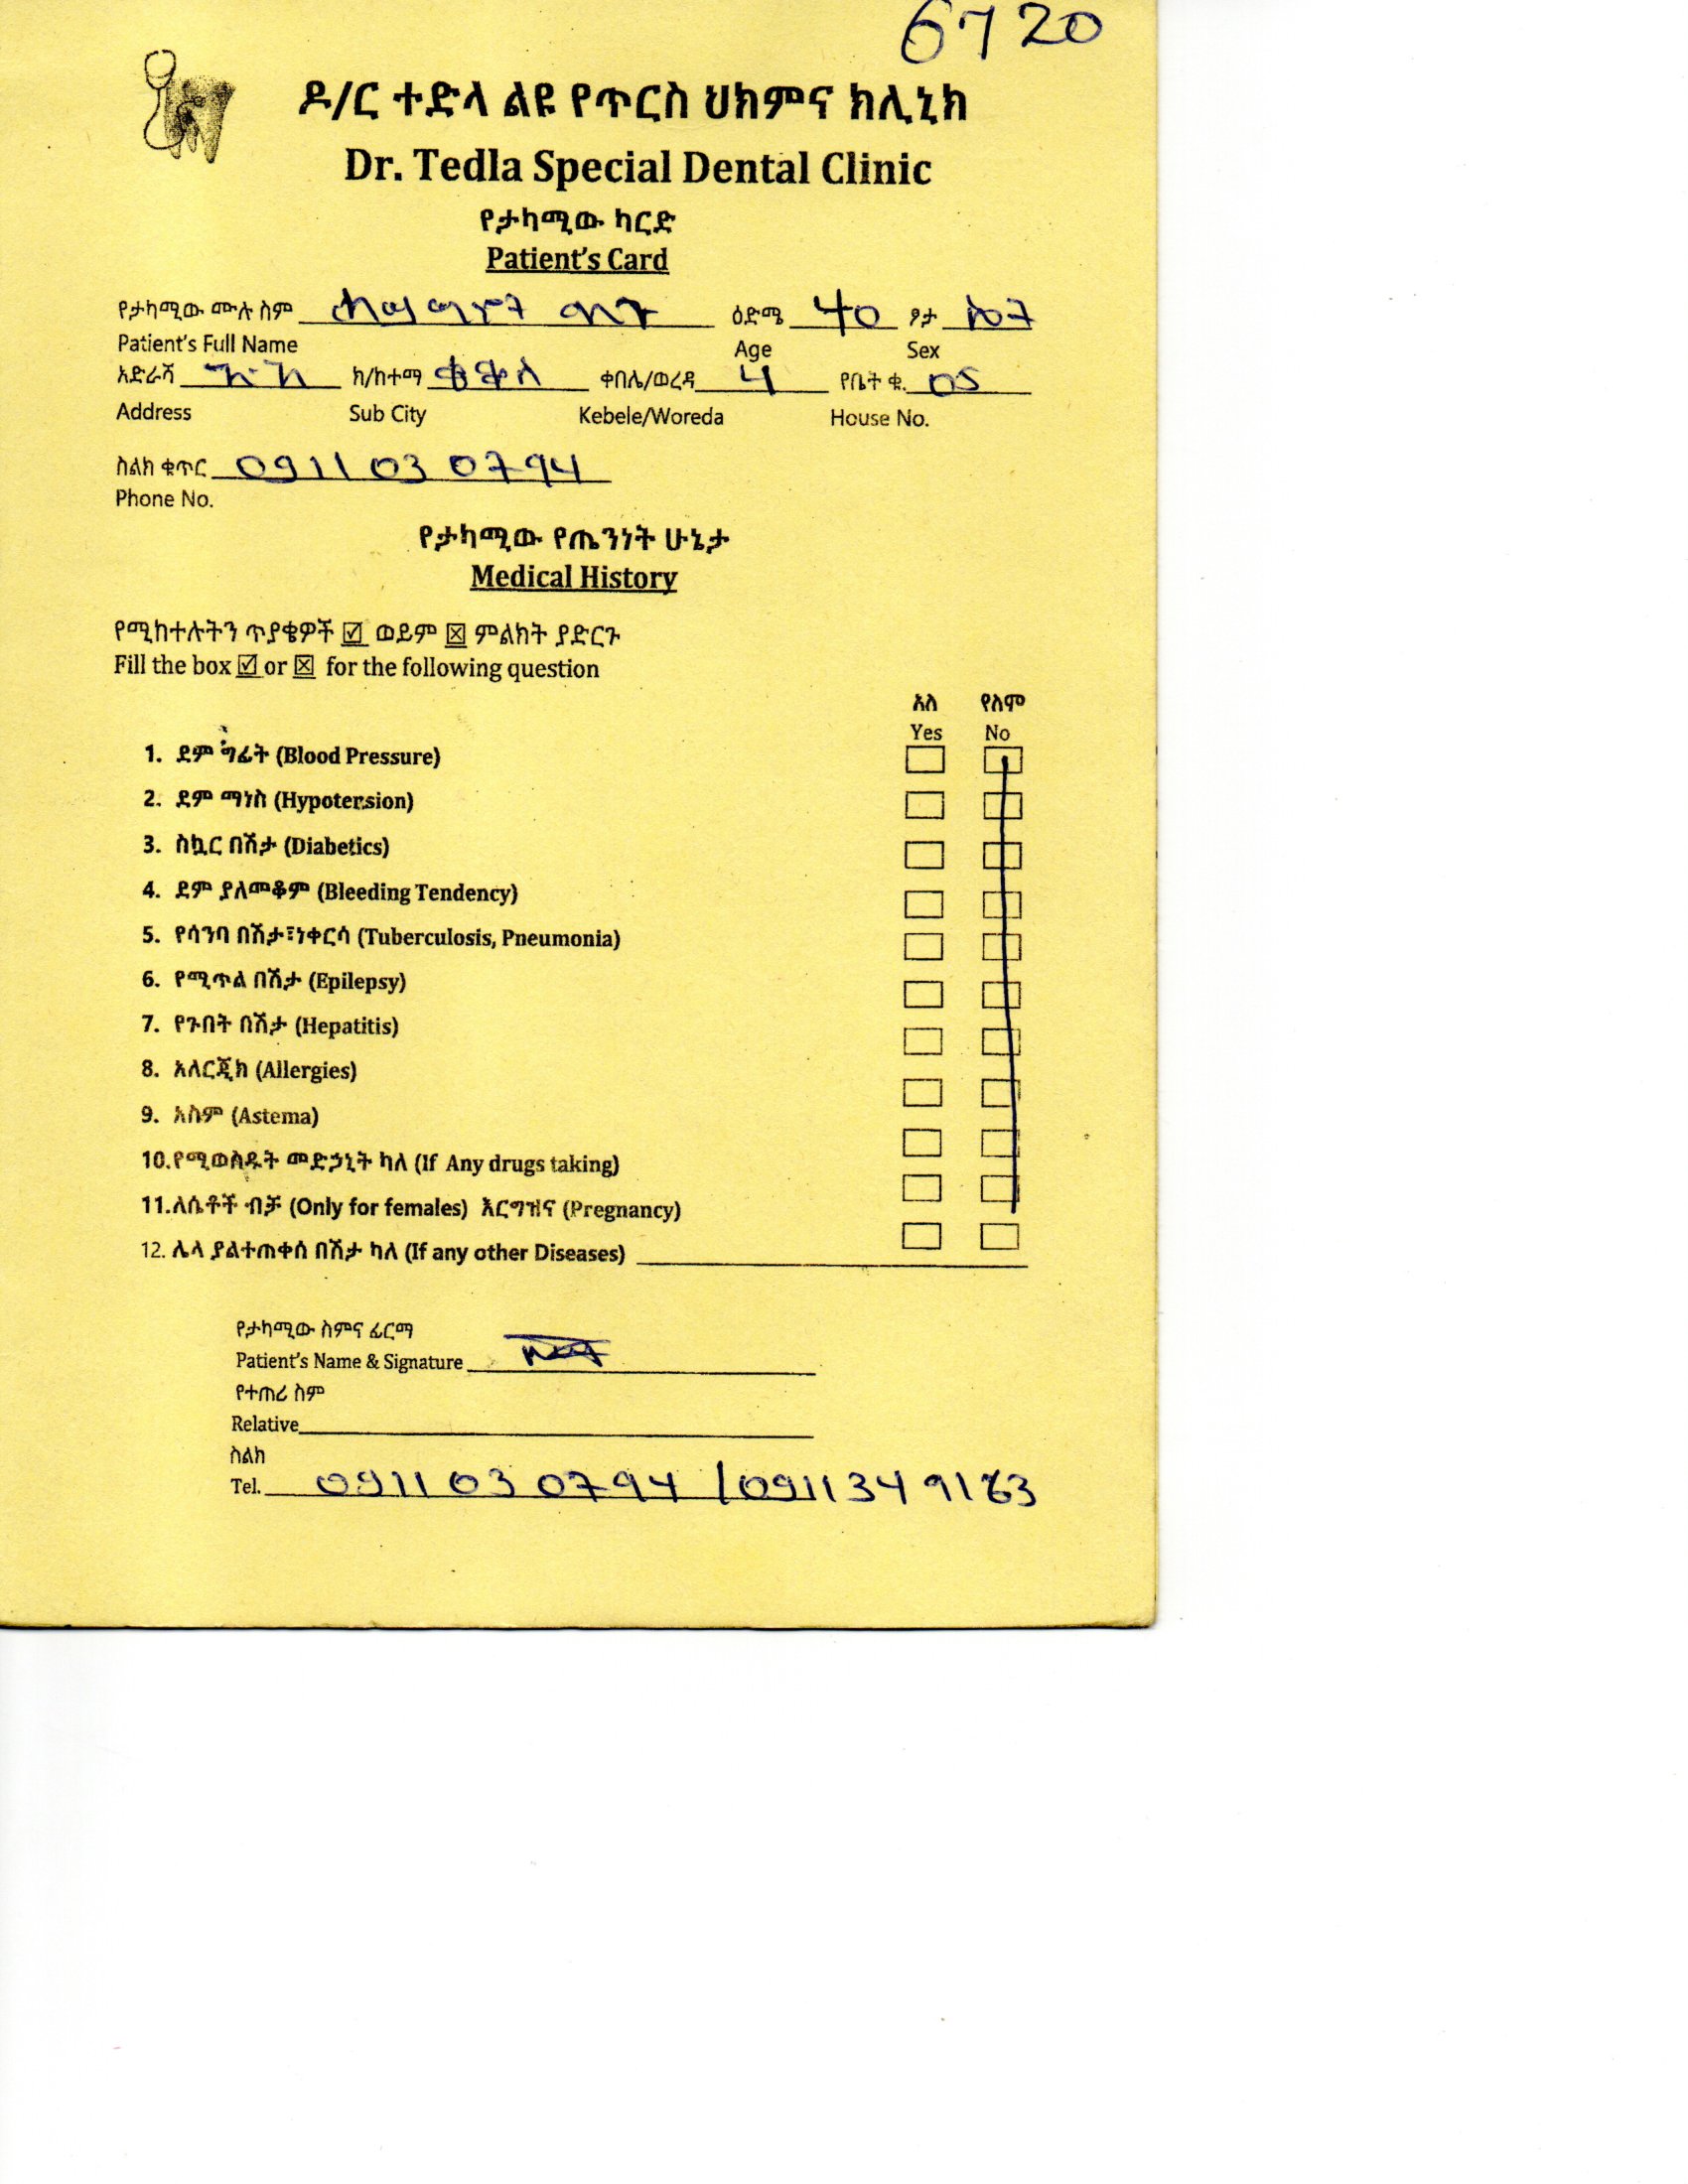 6720
ዶ/ር ተድላ ልዩ የጥርስ ህክምና ክሊኒክ
Dr. Tedla Special Dental Clinic
የታካሚው ካርድ
Patient's Card
የታካሚው ሙሉ ስም ዕድሜ 40 ፆታ ሴት
Patient's Full Name Age Sex
አድራሻ አ.አ ክ/ከተማ ቂርቆስ ቀበሌ/ወረዳ 4 የቤት ቁ. 05
Address Sub City Kebele/Woreda House No.
ስልክ ቁጥር 0911 03 07 94
Phone No.
የታካሚው የጤንነት ሁኔታ
Medical History
የሚከተሉትን ጥያቄዎች ☑ ወይም ☒ ምልክት ያድርጉ
Fill the box ☑ or ☒ for the following question
አለ የለም
Yes No
1. ደም ግፊት (Blood Pressure)
2. ደም ማነስ (Hypotersion)
3. ስኳር በሽታ (Diabetics)
4. ደም ያለመቆም (Bleeding Tendency)
5. የሳንባ በሽታ፣ነቀርሳ (Tuberculosis, Pneumonia)
6. የሚጥል በሽታ (Epilepsy)
7. የጉበት በሽታ (Hepatitis)
8. አለርጂክ (Allergies)
9. አስም (Astema)
10.የሚወስዱት መድኃኒት ካለ (If Any drugs taking)
11.ለሴቶች ብቻ (Only for females) እርግዝና (Pregnancy)
12. ሌላ ያልተጠቀሰ በሽታ ካለ (If any other Diseases)
የታካሚው ስምና ፊርማ
Patient's Name & Signature
የተጠሪ ስም
Relative
ስልክ
Tel. 0911 03 07 94 / 0911 34 91 83